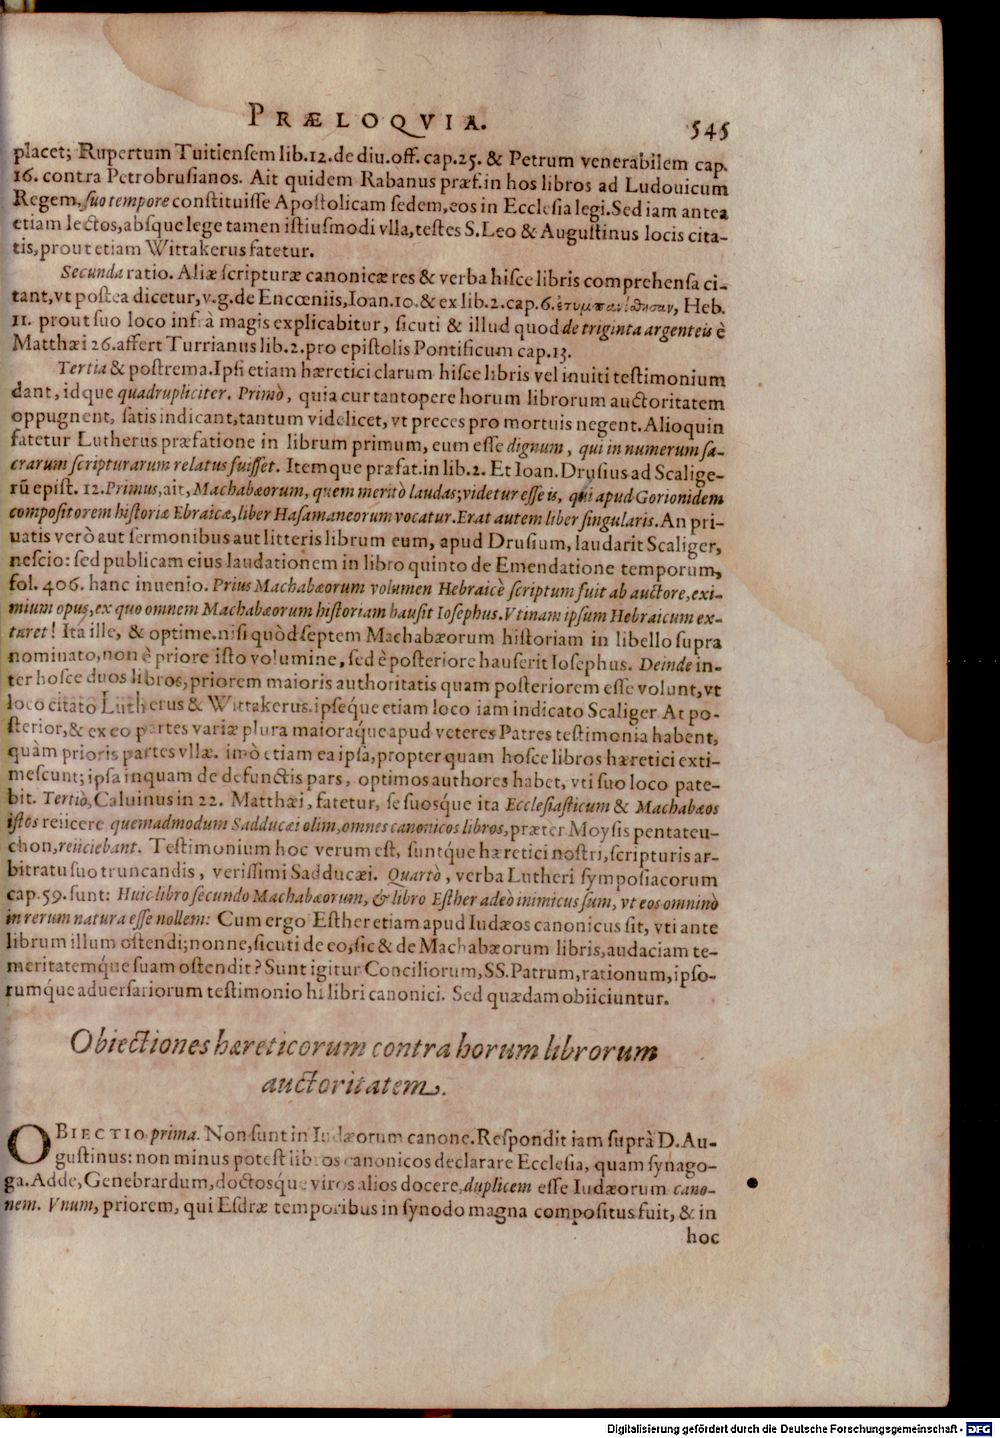 PRÆLOQVIA.
545
placet; Rupertum Tuitiensem lib.12.de diu.off. cap.25. & Petrum venerabilem cap.
16. contra Petrobrusianos. Ait quidem Rabanus præf.in hos libros ad Ludouicum
Regem, suo tempore constituisse Apostolicam sedem,eos in Ecclesia legi.Sed iam antea
etiam lectos,absque lege tamen istiusmodi vlla,testes S.Leo & Augustinus locis cita-
tis,prout etiam Wittakerus fatetur.
Secunda ratio. Aliæ scripturæ canonicæ res & verba hisce libris comprehensa ci-
tant,vt postea dicetur,v.g.de Encœniis,Ioan.10.& ex lib.2.cap.6.ἐτυμπανίσθησαν, Heb.
11. prout suo loco infrà magis explicabitur, sicuti & illud quod de triginta argenteis è
Matthæi 26.affert Turrianus lib.2.pro epistolis Pontificum cap.13.
Tertia & postrema.Ipsi etiam hæretici clarum hisce libris vel inuiti testimonium
dant, idque quadrupliciter. Primò, quia cur tantopere horum librorum auctoritatem
oppugnent, satis indicant,tantum videlicet, vt preces pro mortuis negent.Alioquin
fatetur Lutherus præfatione in librum primum, eum esse dignum, qui in numerum sa-
crarum scripturarum relatus fuisset. Itemque præfat.in lib.2. Et Ioan.Drusius ad Scalige-
rũ epist. 12.Primus,ait, Machabæorum, quem meritò laudas;videtur esse is, qui apud Gorionidem
compositorem historiæ Ebraicæ,liber Hasamaneorum vocatur.Erat autem liber singularis.An pri-
uatis verò aut sermonibus aut litteris librum eum, apud Drusium, laudarit Scaliger,
nescio: sed publicam eius laudationem in libro quinto de Emendatione temporum,
fol. 406. hanc inuenio. Prius Machabæorum volumen Hebraicè scriptum fuit ab auctore,exi-
mium opus,ex quo omnem Machabæorum historiam hausit Iosephus.Vtinam ipsum Hebraicum ex-
taret! Ita ille, & optime.nisi quòd septem Machabæorum historiam in libello supra
nominato,non è priore isto volumine, sed è posteriore hauserit Iosephus. Deinde in-
ter hosce duos libros,priorem maioris authoritatis quam posteriorem esse volunt,vt
loco citato Lutherus & Wittakerus.ipseque etiam loco iam indicato Scaliger At po-
sterior,& ex eo partes variæ plura maioraque apud veteres Patres testimonia habent,
quàm prioris partes vllæ. imò etiam ea ipsa,propter quam hosce libros hæretici exti-
mescunt; ipsa inquam de defunctis pars, optimos authores habet, vti suo loco pate-
bit. Tertiò,Caluinus in 22. Matthæi, fatetur, se suosque ita Ecclesiasticum & Machabæos
istos reiicere quemadmodum Sadducæi olim,omnes canonicos libros,præter Moysis pentateu-
chon,reiiciebant. Testimonium hoc verum est, suntque hæretici nostri,scripturis ar-
bitratu suo truncandis, verissimi Sadducæi. Quartò, verba Lutheri symposiacorum
cap.59.sunt: Huic libro secundo Machabæorum, & libro Esther adeò inimicus sum, vt eos omninò
in rerum natura esse nollem: Cum ergo Esther etiam apud Iudæos canonicus sit, vti ante
librum illum ostendi;nonne,sicuti de eo,sic & de Machabæorum libris,audaciam te-
meritatemque suam ostendit? Sunt igitur Conciliorum,SS.Patrum,rationum,ipso-
rumque aduersariorum testimonio hi libri canonici. Sed quædam obiiciuntur.
Obiectiones hæreticorum contra horum librorum
auctoritatem.
OBIECTIO prima. Non sunt in Iudæorum canone.Respondit iam suprà D.Au-
gustinus: non minus potest libros canonicos declarare Ecclesia, quam synago-
ga.Adde,Genebrardum,doctosque viros alios docere,duplicem esse Iudæorum cano-
nem. Vnum, priorem, qui Esdræ temporibus in synodo magna compositus fuit, & in
hoc
Digitalisierung gefördert durch die Deutsche Forschungsgemeinschaft - DFG